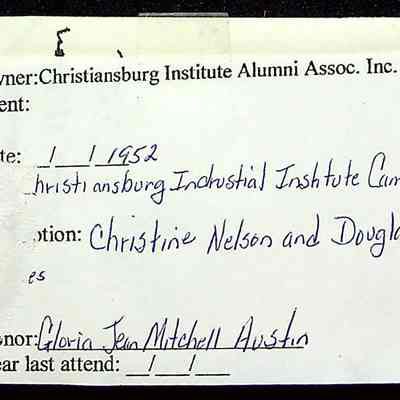 wner:Christiansburg Institute Alumni Assoc. Inc.
ent:
te: / / 1952
hristiansburg Indrustial Institute Cam
otion: Christine Nelson and Dougla
es
nor: Gloria Jean Mitchell Austin
ear last attend: __/__/__